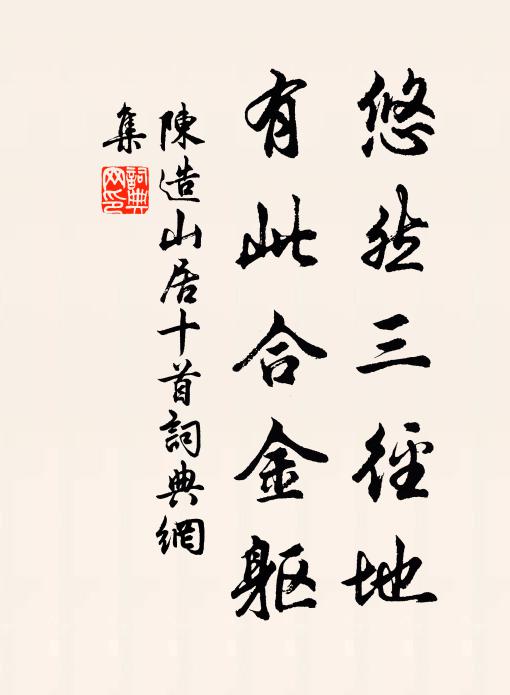 悠然三徑地
有此合金軀
陳造山居十首詞典網
集
詞典網印